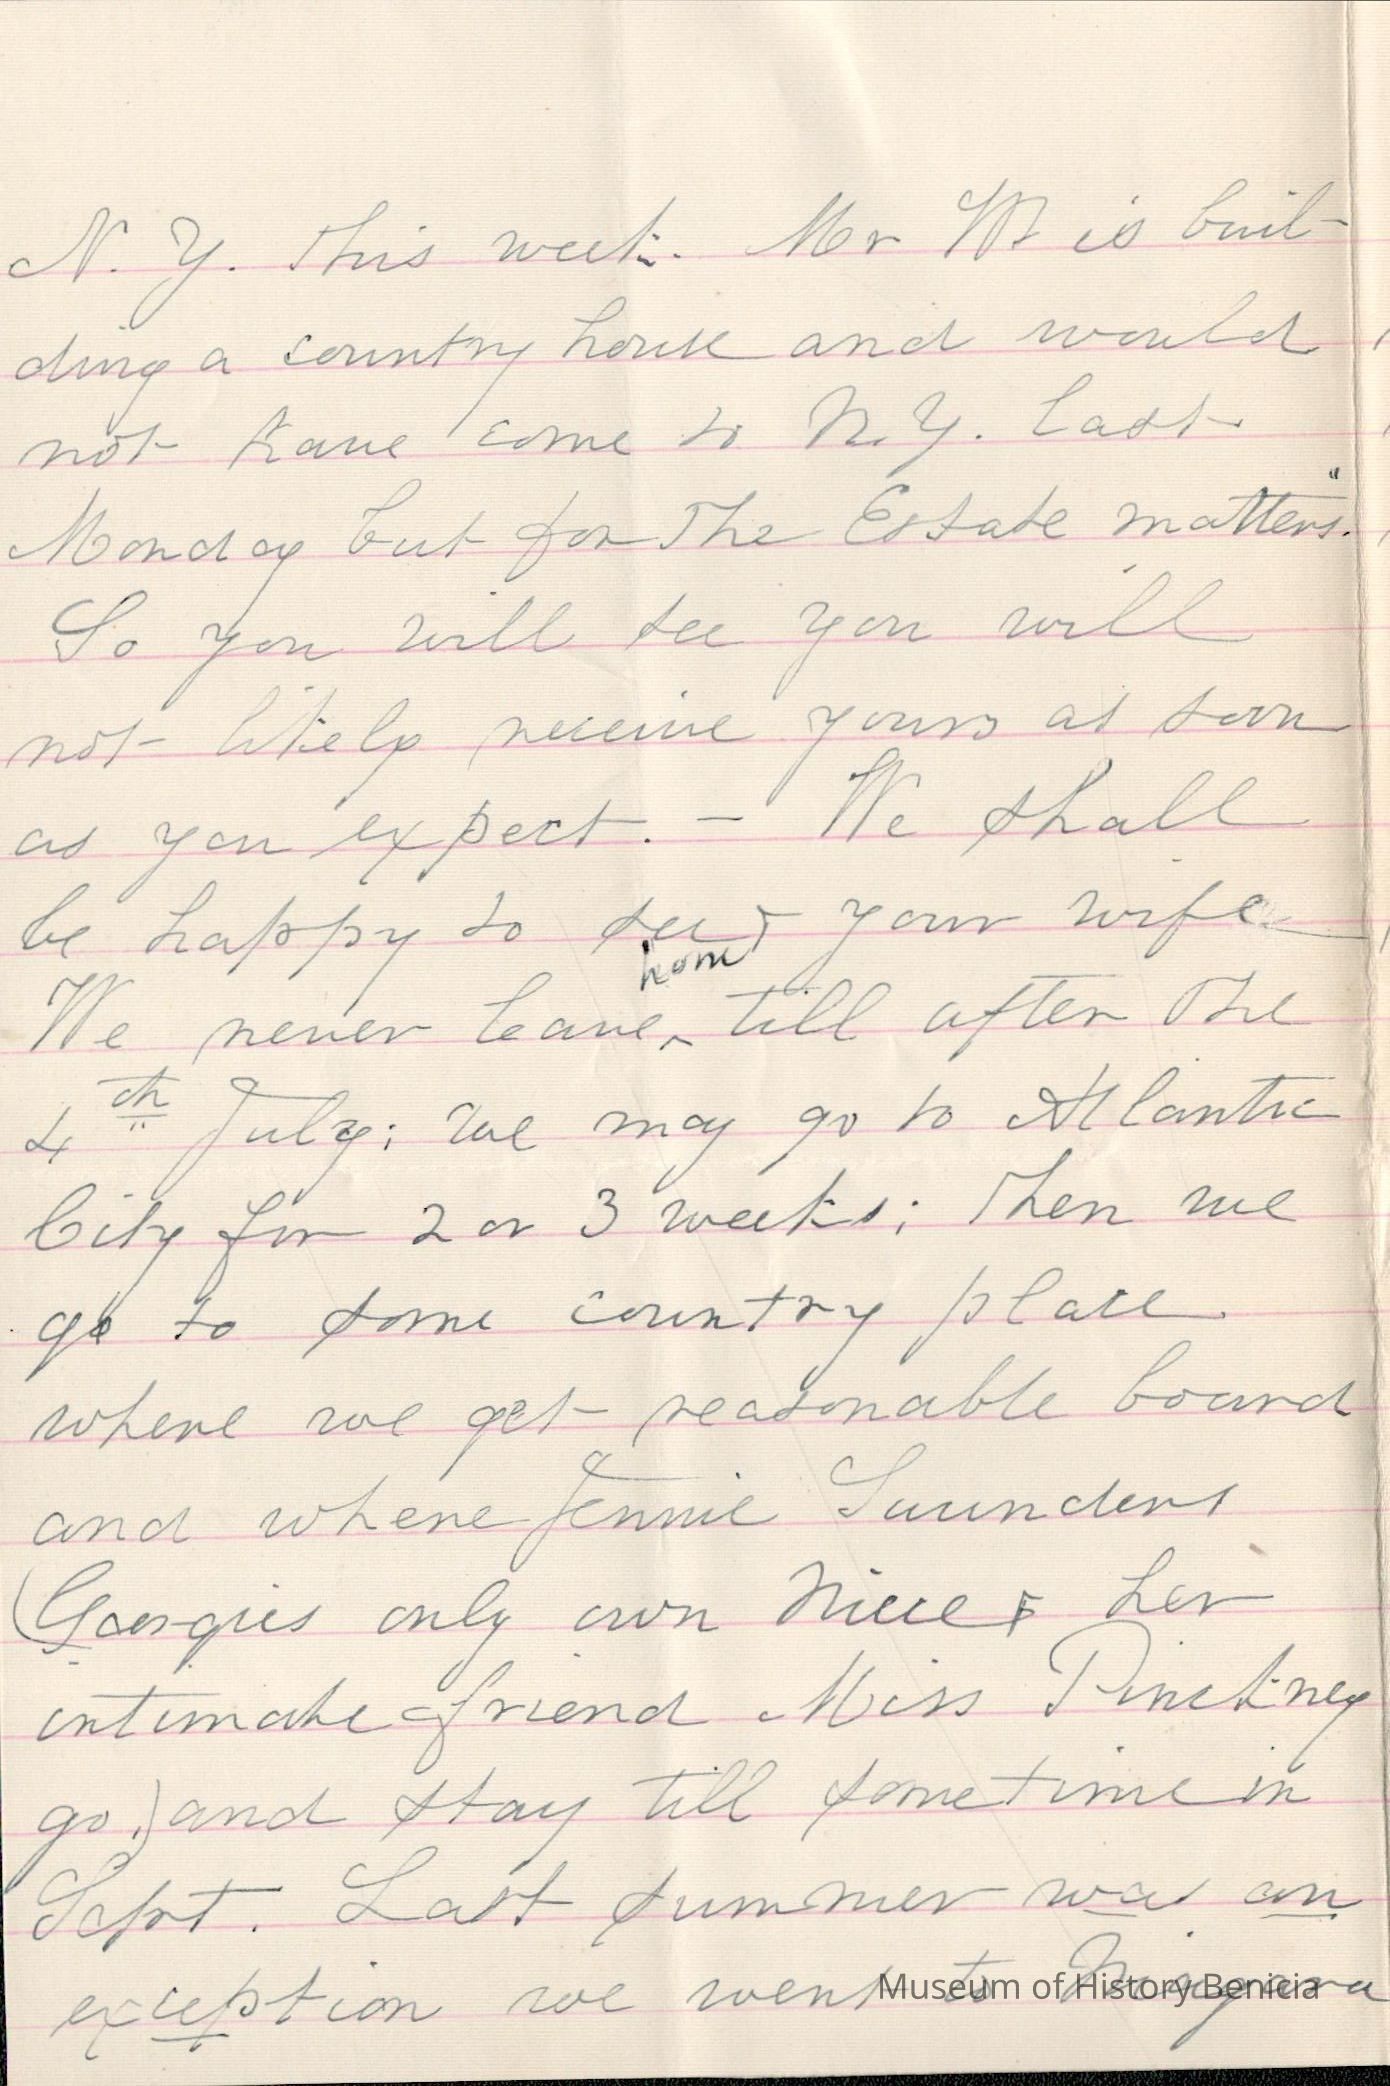 N. Y. this week. Mr W is buil-
ding a country house and would
not have come to N. Y. last
Monday but for the Estate matters."
So you will see you will
not likely receive yours as soon
as you expect. - We shall
be happy to see & your wife
home
We never leave ^ till after the
4th July; we may go to Atlantic
City for 2 or 3 weeks; then we
go to some country place
where we get reasonable board
and where Jennie Saunders
(Georgies only own Niece & her
intimate friend Miss Pinckney
go.) and stay till sometime in
Sept. Last summer was an
exception we went to Niagara
Museum of History Benicia